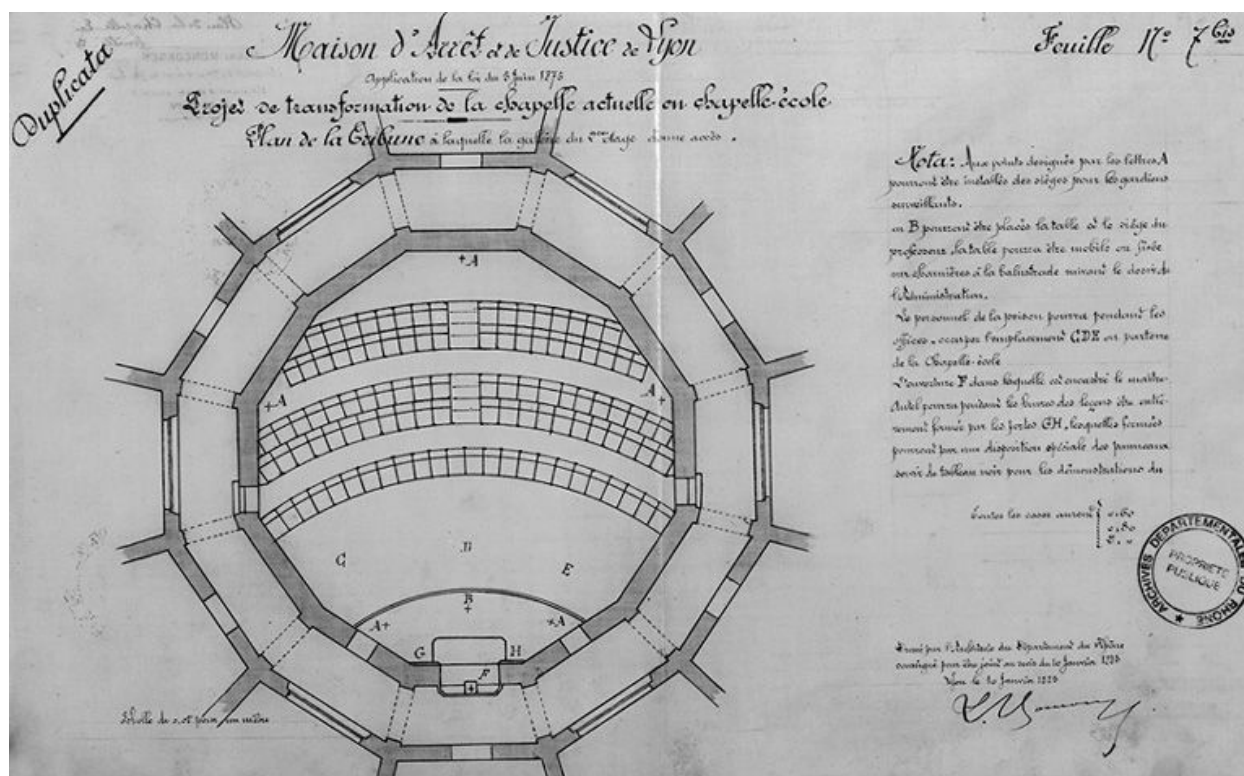 Duplicata
Maison d'Arrêt et de Justice de Lyon
Feuille N° 7 bis
Application de la loi du 5 Juin 1875
Projet de transformation de la chapelle actuelle en chapelle-école
Plan de la Tribune à laquelle la galerie du 2me étage donne accès.
Nota: Aux points désignés par les lettres A
pourront être installés des sièges pour les gardiens
surveillants.
en B pourront être placés la table et le siège du
professeur. La table pourra être mobile ou fixée
sur charnières à la balustrade suivant le désir de
l'Administration.
Le personnel de la prison pourra pendant les
offices, occuper l'emplacement CDE au parterre
de la Chapelle-école
L'ouverture F dans laquelle est encastré le maître-
Autel pourra pendant les heures des leçons être entiè-
rement fermée par les portes GH, lesquelles fermées
pourront par une disposition spéciale des panneaux
servir de tableau noir pour les démonstrations du
Toutes les cases auront
0.60
0.80
ARCHIVES DÉPARTEMENTALES DU RHÔNE
PROPRIÉTÉ
PUBLIQUE
A
A
A
C
E
B
A
A
G
H
F
Echelle de 0.02 pour un mètre
par l'Architecte du Département du Rhône
soussigné pour être joint au devis du 10 Janvier
Lyon le 10 Janvier